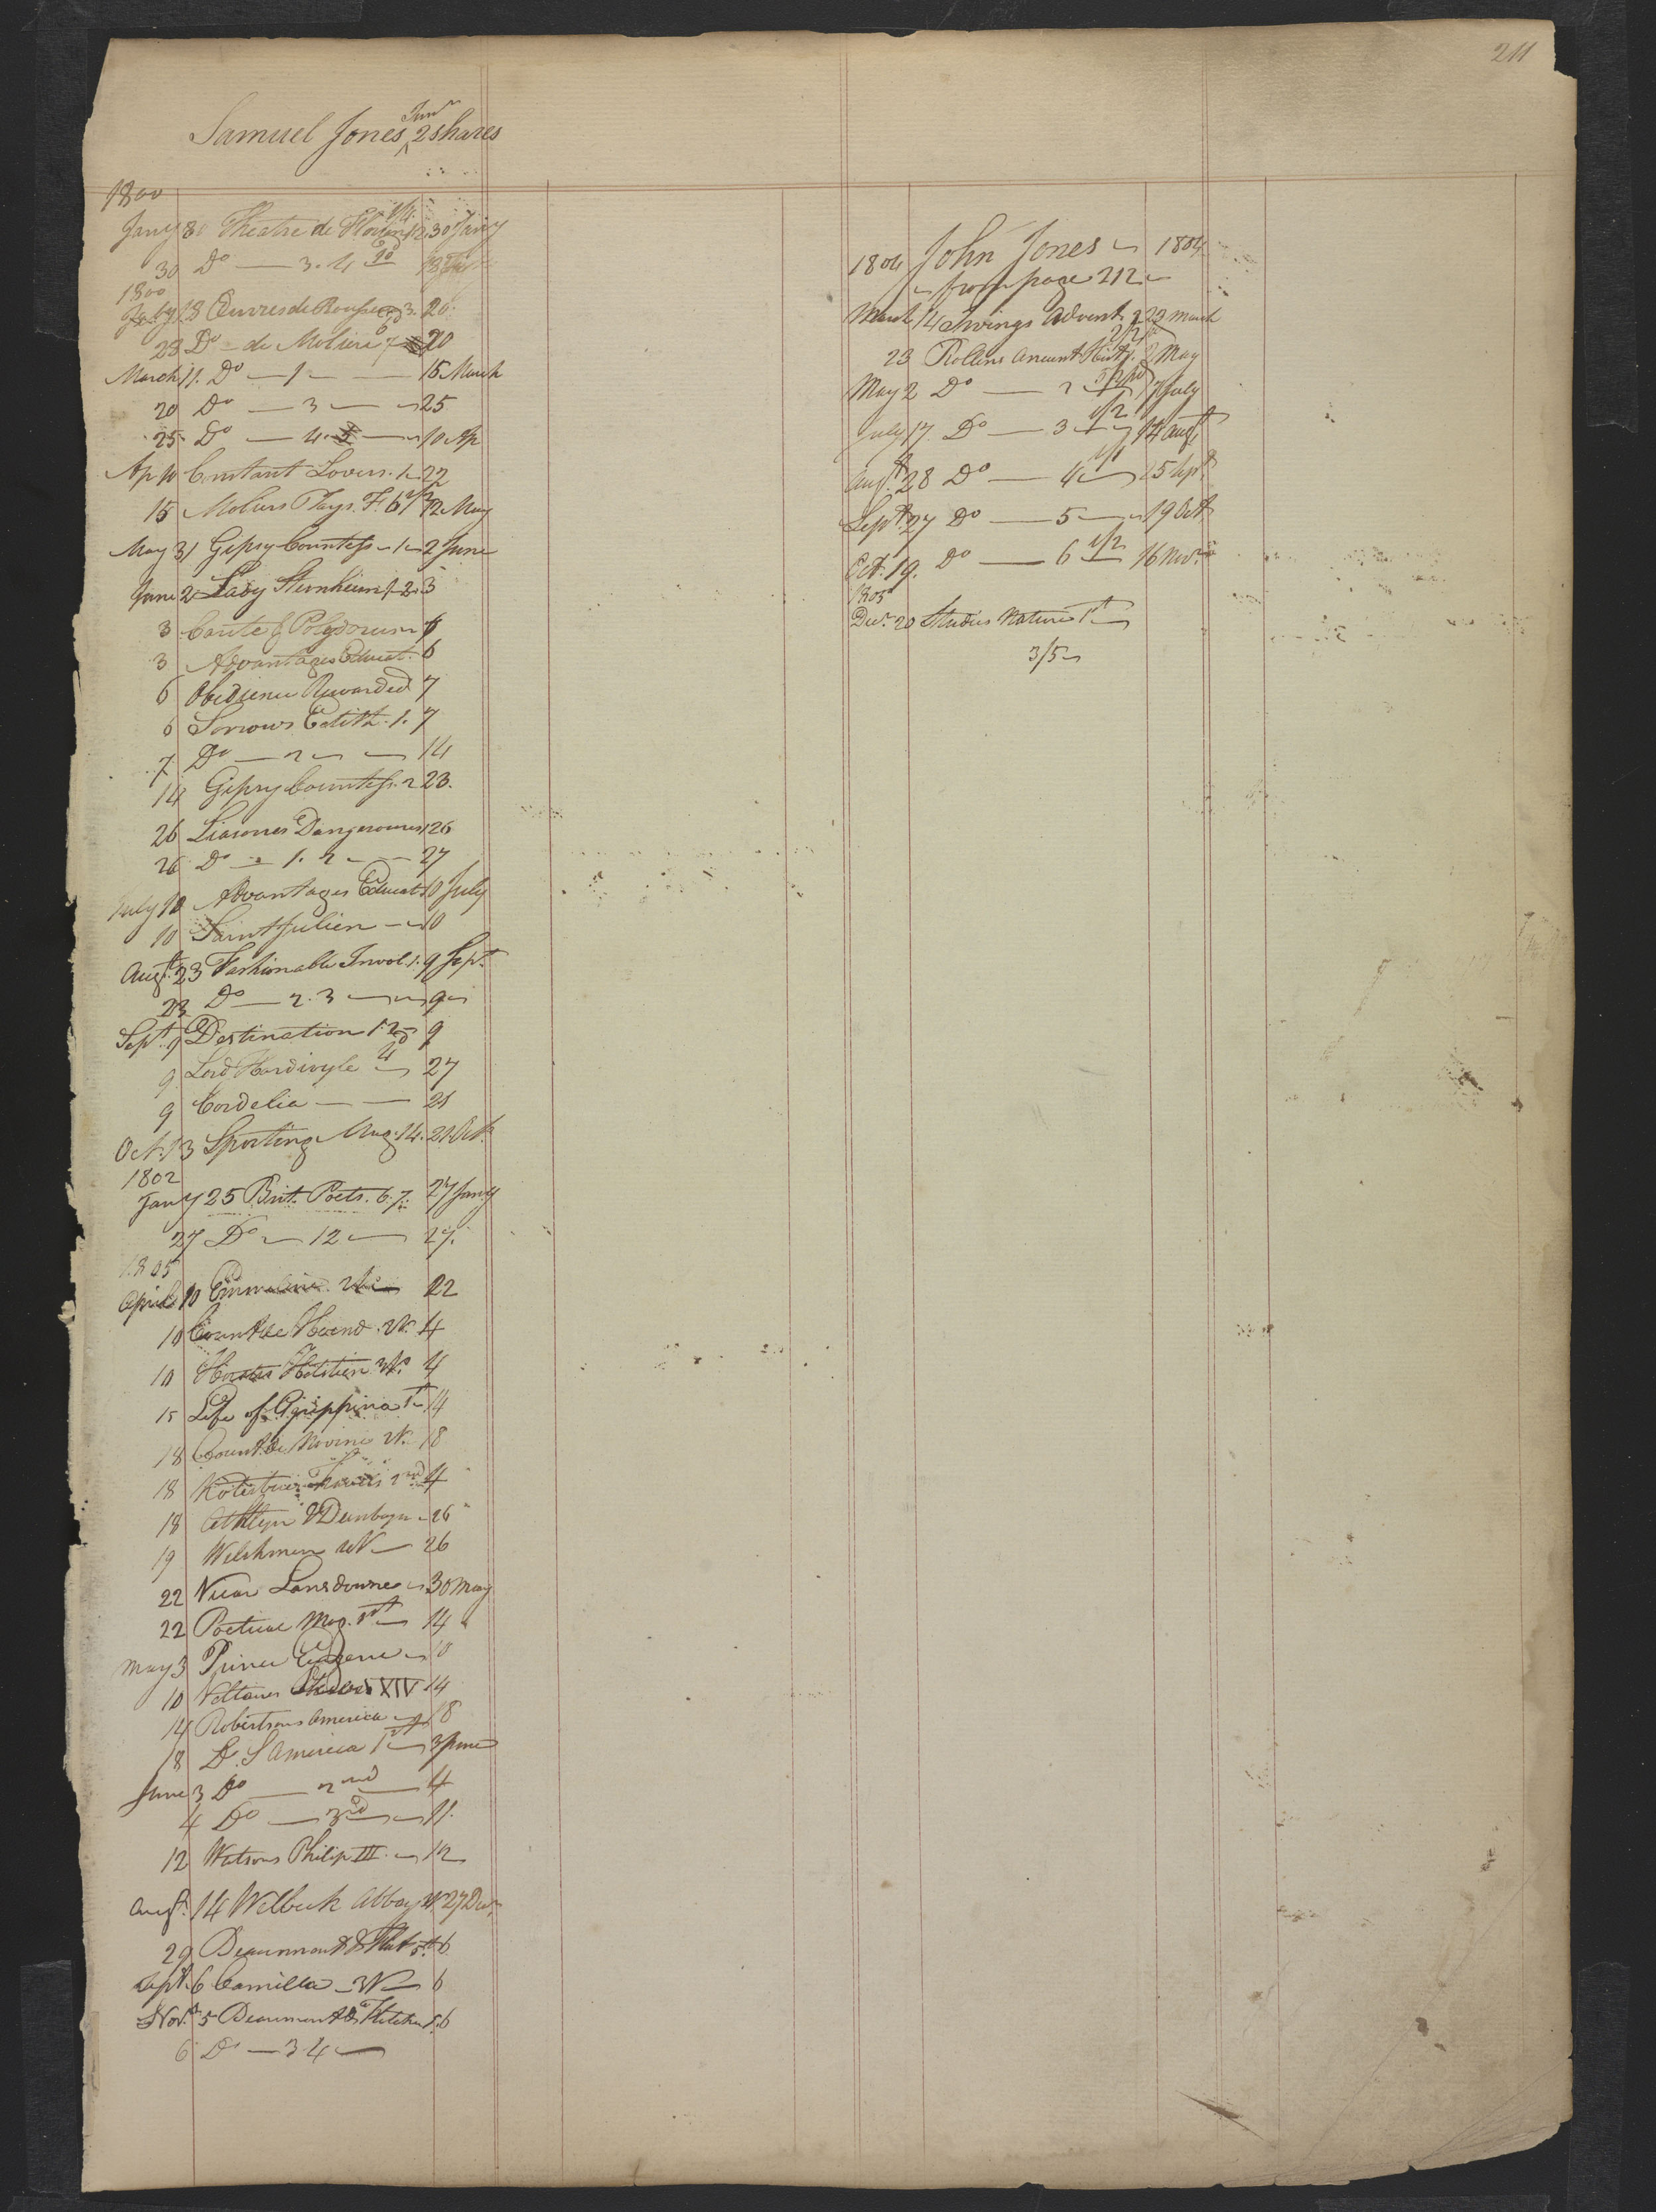 211
Samuel Jones Junr 2 shares
1800
Jany 30 Theatre de Florian 1.2. 30 Jany
30 Do — 3. 4
1800
18 Œuvres de 3. 20
28 Do de Moliere 20
March 11. Do — 1 — 15 March
20 Do — 3 — 25
25 Do — 4. 10 Ap
Ap 10 Constant Lovers. 1. 22
15 Moliers Plays. F. 6 12 May
May 31 Gipsy Countess 1 2 June
June 2 Lady Sternheim 1. 2. 3
3 Cante & Polydorus 6
3 Advantages Educat. 6
6 Obedience Rewarded 7
6 Sorrows Edith. 1. 7
7 Do — 2 — 14
14 Gipsy Countess. 2 23.
26 Liasones Dangerouses 26
26 Do — 1. 2 — 27
July 10 Advantages Educat. 10 July
10 Saint Julien — 10
Augt. 23 Fashionable Invol. 1. 9 Sept.
23 Do — 2. 3 — 9
Sept. 9 Destination 1. 2 9
9 Lord Hardivyle 27
9 Cordelia — 21
Oct. 13 Sporting Mag. 14. 21 Oct.
1802
Jany 25 Brit. Poets. 6. 7. 27 Jany
27 Do — 12 — 27.
1805
April 10 Emmeline 22
10 Count de 4
10 Holstien 4
15 Life of Agrippina 1st 14
18 Count de Novini 18
18 2nd 4
18 26
19 Welshmen 26
22 Vicar Lansdowne 30 May
22 Poetical Mag. 1st 14
May 3 Prince Eugene 10
10 Voltaires XIV 14
14 Robertsons America 18
18 Do. S America 1st 3 June
June 3 Do — 2nd — 4
4 Do — 3rd — 11.
12 Watsons Philip III. 12
Augt. 14 Welbeck Abbey 27 Decr
29 Beaumont & Flet 5th 6
Sept. 6 Camilla 3V 6
Novr. 5 Beaumont & Fletcher 1. 6
6 Do — 3 4 —
1804 John Jones 1804
from page 212
March 14 Irvings Advent. 2 22 March
23 Rollins Ancient Hist. 1. 2 May
May 2 Do — 2 17 July
July 17 Do — 3 14 Augt.
Augt. 28 Do — 4 15 Sept.
Sept. 27 Do — 5 19 Oct
Oct. 19. Do — 6 1/2 16 Novr.
1805
Decr. 20 Studies Nature 1st
3/5